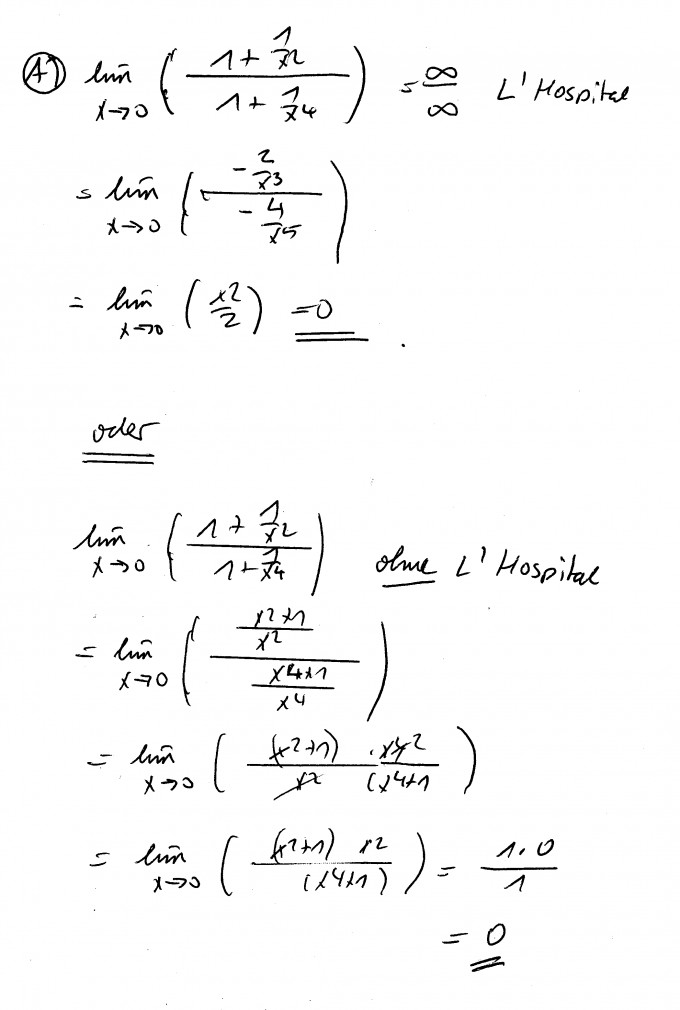 A) lim x→0 ( (1 + 1/x²) / (1 + 1/x⁴) ) = ∞/∞ L'Hospital
= lim x→0 ( (-2/x³) / (-4/x⁵) )
= lim x→0 ( x²/2 ) = 0
oder
lim x→0 ( (1 + 1/x²) / (1 + 1/x⁴) ) ohne L'Hospital
= lim x→0 ( ((x²+1)/x²) / ((x⁴+1)/x⁴) )
= lim x→0 ( (x²+1)/x² · x⁴ ²/(x⁴+1 )
= lim x→0 ( (x²+1) x² / (x⁴+1) ) = 1·0/1
= 0